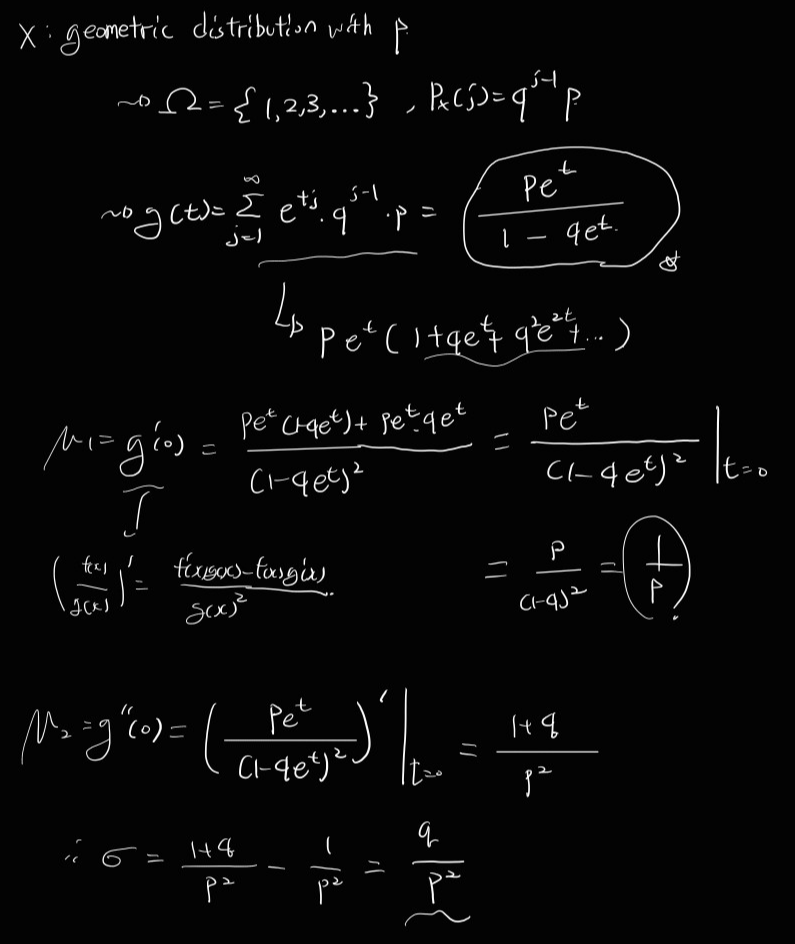 X : geometric distribution with p.
⇝ Ω = { 1,2,3,...} , Pₓ(j) = q^{j-1} p
⇝ g(t) = Σ_{j=1}^{∞} e^{tj} · q^{j-1} · p = pe^t / (1 - qe^t.)
↳ pe^t ( 1 + qe^t + q²e^{2t} + ... )
μ₁ = g'(0) = (pe^t (1-qe^t) + pe^t · qe^t) / (1-qe^t)² = pe^t / (1-qe^t)² |_{t=0}
(f(x) / g(x))' = (f'(x)g(x) - f(x)g'(x)) / g(x)² = p / (1-q)² = 1 / p
μ₂ = g''(0) = (pe^t / (1-qe^t)²)' |_{t=0} = (1+q) / p²
∴ σ = (1+q) / p² - 1 / p² = q / p²